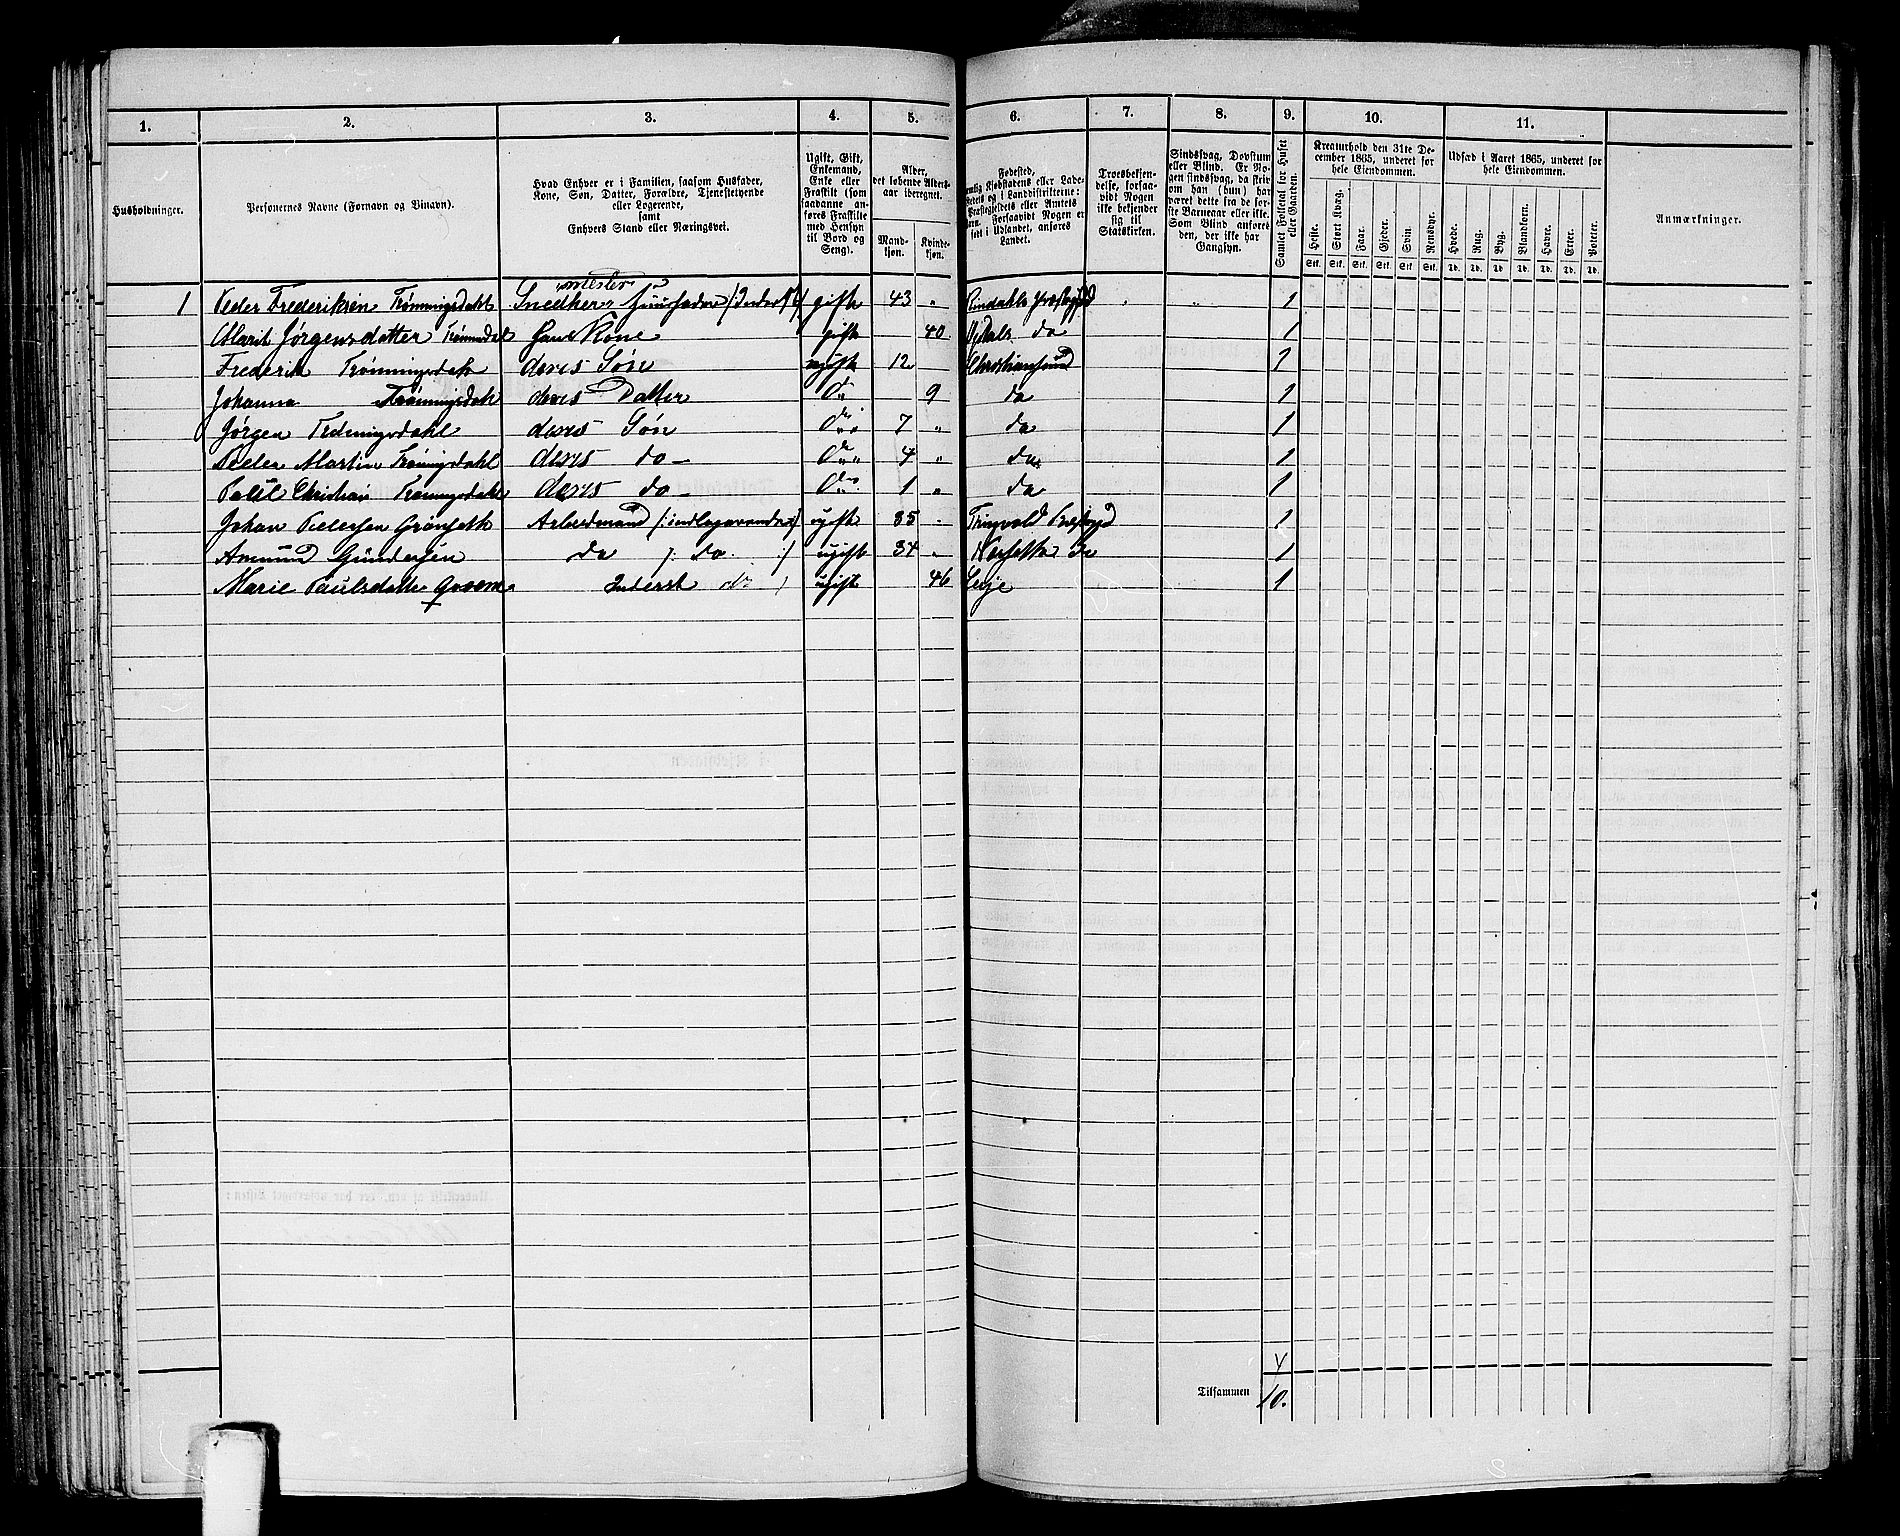 1. 2. 3. 4. 5. 6. 7. 8. 9. 10. 11.
Husholdninger.
Personernes Navne (Fornavn og Tilnavn).
Hvad Enhver er i Familien, saasom Husfader,
Kone, Søn, Datter, Forældre, Tjenestetyende
eller Logerende,
samt
Enhvers Stand eller Næringsvei.
Ugift, Gift,
Enkemand,
Enke eller
Fraskilt (som
saadanne an-
føres Fraskilte
med Hensyn
til Bord og
Seng).
Alder,
det løbende Alders-
aar iberegnet.
Mand-
kjøn.
Kvinde-
kjøn.
Fødested,
Kjøbstadens eller Lade-
stedets og i Landdistrikterne:
Præstegjeldets eller Amtets
Navn. Forsaavidt Nogen er
født i Udlandet, anføres
Landet.
Troesbekjen-
delse, forsaa-
vidt Nogen
ikke bekjender
sig til
Statskirken.
Sindssvag, Døvstum
eller Blind. Er No-
gen sindssvag, da skriv
om han (hun) har
været dette fra de før-
ste Barneaar eller ikke.
Som Blind anføres
den, der ikke har
Gangsyn.
Samlet Folketal for Huset
eller Gaarden.
Kreaturhold den 31te De-
cember 1865, underet for
hele Eiendommen.
Heste. Stort Kvæg. Faar. Gjeder. Svin. Rensdyr.
Stk. Stk. Stk. Stk. Stk. Stk.
Udsæd i Aaret 1865, underet for
hele Eiendommen.
Hvede. Rug. Byg. Blandkorn. Havre. Erter. Poteter.
Td. Td. Td. Td. Td. Td. Td.
Anmærkninger.
mester
1 Peder Frederiksen Trønningsdahl Snedker Huusfader gift 43 " Rindahls Præstegjd 1
Marit Jørgensdatter hans Kone gift 40 da 1
Frederik Trønningsdahl deres Søn ugift 12 Christiansund 1
Johanna Trønningsdahl deres Datter do 9 da 1
Jørgen Trønningsdahl deres Søn do 7 " da 1
Peder Martin Trønningsdahl deres do do 4 " da 1
Paul Christian Trønningsdahl deres do do 1 " da 1
Johan Pedersen Grønseth Arbeidsmand /: indlogerende :/ ugift 35 " Tingvold Præstgjd 1
Amund Gundersen do /: do :/ ugift 34 " 1
Marie Paulsdatter Inderst do ugift 46 Lesje 1
Tilsammen 10.